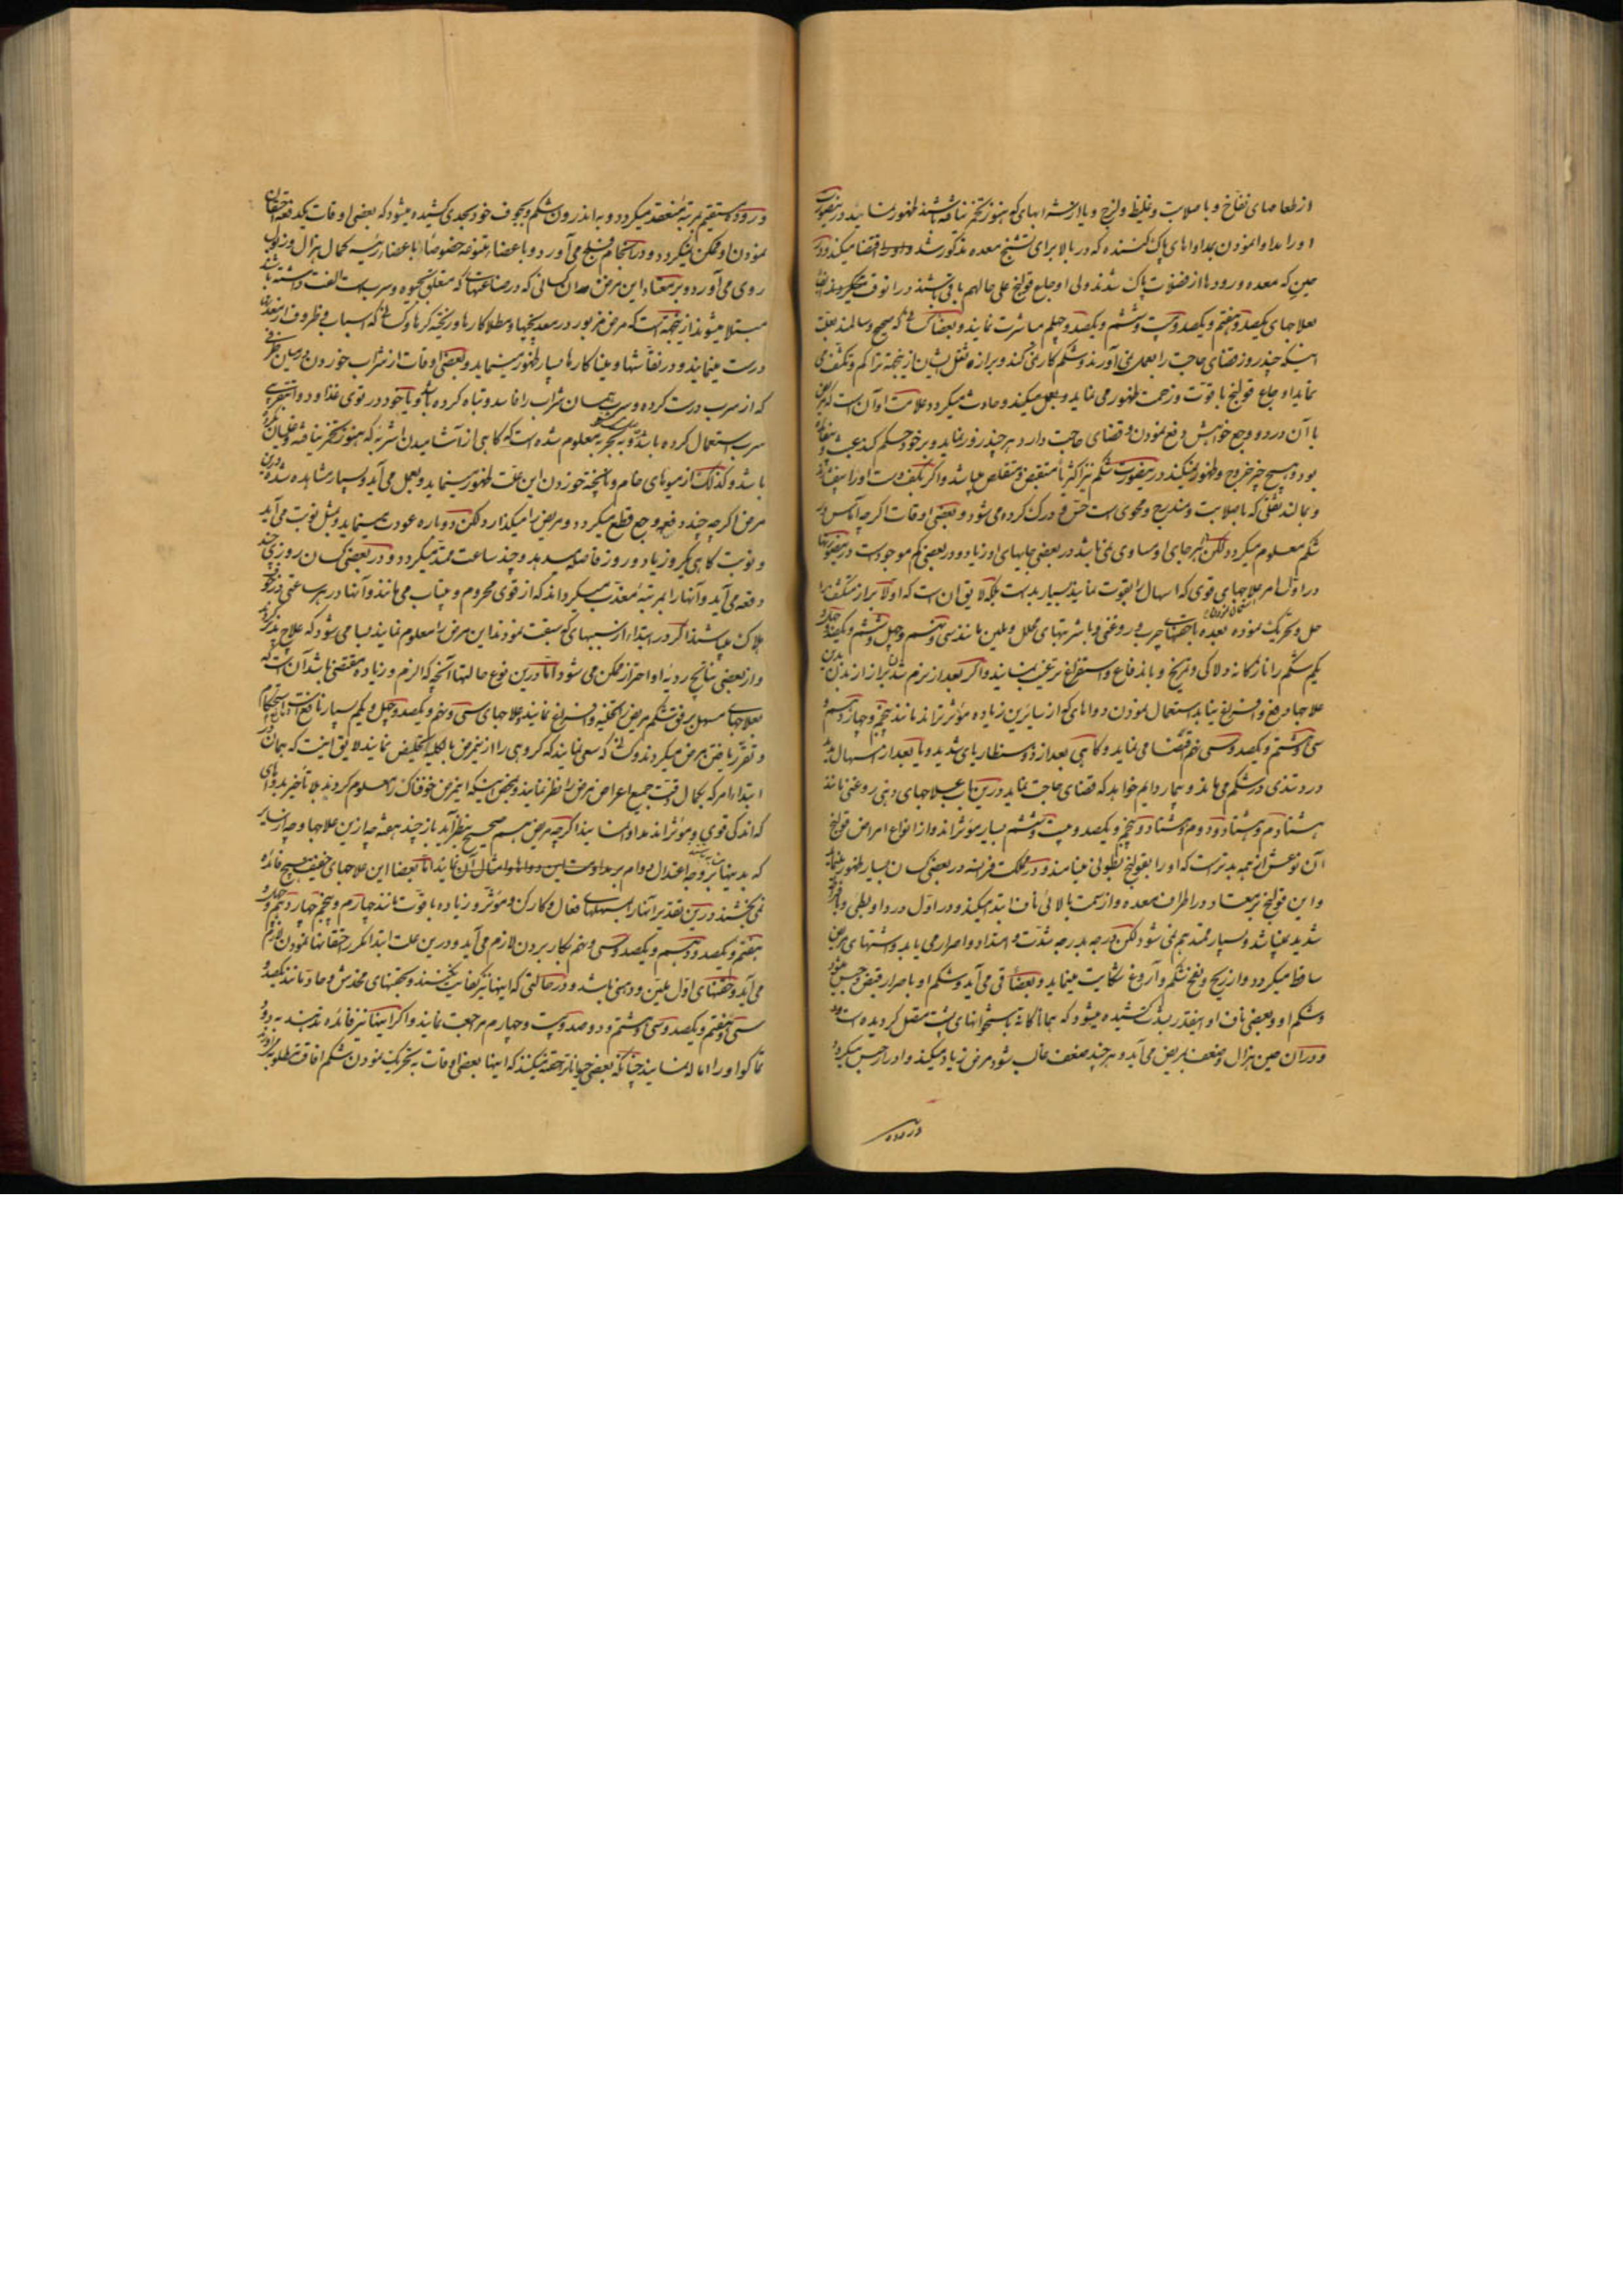 از طعامهای نفاخ و با صلابت و غلیظ و لزج و یا از شرابهای که هنوز تخمر نیافته باشند ظهور نمایند درینصورت
او را مداوا نمودن بمداواهای پاک کننده که در بالا برای تشنج معده مذکور شد اقتضا میکند و در
حینی که معده و رودها از فضولات پاک شدند ولی اوجاع قولنج علی حالهم باقی باشند در آنوقت
بعلاجهای یکصد و هفتم و یکصد و بیست و ششم و یکصد و چهلم مباشرت نمایند و بعضا کسانی که صحیح و سالمند بعلت
اینکه چند روز قضای حاجت را بعمل نمی آورند و شکم کار نمی کند و براز و ثقل ایشان ازینجهة تراکم و تکثف می
نماید اوجاع قولنج با قوت و زحمت ظهور می نماید و بعمل میکند و حادث میگردد و علامت او آن است که مریض
با آن درد و وجع خواهش دفع نمودن و قضای حاجت دارد هر چند زور نماید و بر خود حکم کند عبث و بیفایده
بود و هیچ چیز خروج و ظهور نمیکند درینصورت شکم نیز اکثریا منقبض و متقلص میباشد و اگر بکف دست او را
و بمالند ثقلی که با صلابت و مندرج و محوی است حس و درک کرده می شود و بعضی اوقات اگر چه آماس در
شکم معلوم میگردد لکن هر جای او مساوی نمی باشد در بعضی جایهای او زیاد و در بعضی کم موجود است درینصورتها
در اول امر علاجهای قوی که اسهال را بقوت نمایند بسیار بد است بلکه لایق آن است که اولا براز متکثف را
حل و تحریک نموده بعده با حقنهای چرب و روغنی و با شربتهای محلل و ملین مانند سی و نهم و چهل و ششم و یکصد و
یکم شکم را نازکانه و لاکی و تمریخ و باندفاع و استفراغ ترغیب نمایند و اگر بعد از نرم شدن براز از بدن
علاجها دفع و استفراغ نیابد استعمال نمودن دواهای که از سایرین زیاده مؤثرترند مانند پنجم و چهاردهم و
سی و هشتم و یکصد و سی و نهم اقتضا می نماید و گاهی بعد از ذوسنطاریای شدید و یا بعد از اسهال
درد تندی در شکم می ماند و بیمار دایم خواهد که قضای حاجت نماید درین باب علاجهای دهنی روغنی مانند
هشتادم و هشتاد و دوم و هشتاد و پنجم و یکصد و بیست و ششم بسیار مؤثراند و از انواع امراض قولنج
آن نوعش از همه بدتر است که او را بقولنج بطولی مینامند و در مملکت فرانسه در بعضی کسان بسیار ظهور مینماید
و این قولنج نیز معتاد در اطراف معده و از سمت بالائی ناف ابتدا میکند و در اول درد او بطی و
شدید میباشد و بسیار ممتد هم نمی شود لکن درجه بدرجه شدت و امتداد و اصرار می یابد و اشتهای مریض
ساقط میگردد و از ریح و نفخ شکم و آروغ شکایت مینماید و بعضا قی می آید و شکم او باصرار قبض و حبس میشود
و شکم او و بعضی ناف او اینقدر بشدت کشیده میشود که همانا گانه باستخوانهای پشت متصل گردیده است و
و در آن حین هزال و ضعف بمریض می آید و هر چند ضعف غالب شود مرض زیاد میکند و او را حبس میگردد
در روده
و روده مستقیم بمرتبه منعقد میگردد و به اندرون شکم و بجوف خود بحدی کشیده میشود که بعضی اوقات یک دفعه احتقان
نمودن او ممکن نمیگردد و در انجام فلج می آورد و باعضاء متنوعه خصوصا باعضاء رئیسه کمال هزال و ذبول
روی می آورد و بر معتاد این مرض همان کسانی که در صناعتهای که متعلق بجیوه و سرب است الفت داشته باشند
مبتلا میشوند ازینجهة است که مرض مزبور در معدنچیها و مطلاکارها و ریخته گرها و کسانی که اسباب و ظروف از معدن
درست مینمایند و در نقاشها و میناکارها بسیار ظهور مینماید و بعضی اوقات از شراب خوردن در میان ظرفی
که از سرب درست کرده و سرب همان شراب را فاسد و تباه کرده باشد و یا خود در توی غذا و دوا
سرب استعمال کرده باشد و به تجربه معلوم شده است که گاهی از آشامیدن اشربه که هنوز تخمر نیافته و غلیان نکرده
باشد و کذلک از میوهای خام و ناپخته خوردن این علت ظهور مینماید و بعمل می آید و بسیار مشاهده شده درین
مرض اگر چه چند دفعه وجع قطع میگردد و مریض را میگذارد لکن دوباره عودت مینماید و بمثل نوبت می آید
و نوبت گاهی یک روز یا دو روز فاصله میدهد و چند ساعت ممتد میگردد و در بعضی کسان روزی چند
دفعه می آید و آنها را بمرتبه معذب میگرداند که از قوی محروم و بیتاب می مانند و آنها در هر ساعتی در خوف
هلاک میباشند اگر در ابتداء از سببهای که سبقت نمودند این مرض را معلوم نمایند بسا می شود که علاج پذیر گردد
و از بعضی نتائج ردیه او احتراز ممکن می شود اما درین نوع حالتها آنچه که الزم و زیاده مقتضی باشد آن است که
بعلاجهای مسهل برفق شکم مریض را تخلیه و استفراغ نمایند و علاجهای سی و نهم و یکصد و چهل و یکم بسیار نافع
و تقرر یافتن مرض میگردند و کسانی که سعی نمایند که گروهی را ازینمرض بالکلیه تخلیص نمایند لایق اینست که همان در
ابتداء امر که بکمال دقت جمیع اعراض مرض را نظر نمایند و بمحض اینکه اینمرض خوفناک را معلوم کردند بلا تأخیر بدواهای
که اندکی قوی و مؤثراند مداوا نمایند اگر چه مریض هم صحیح بنظر آید باز چند هفته چه ازین علاجها و چه از سایر
که بدینها مشابه باشند بر وجه اعتدال دوام نمایند اما بعضا این علاجهای خفیف هیچ فائده
نمی بخشند درین تقدیر آنان را مسهلهای فعال و کارکن و مؤثر و زیاده با قوت مانند چهارم و پنجم چهاردهم و
هفتم و یکصد و دهم و یکصد و سی و نهم بکار بردن لازم می آید و درین علت ابتدا مکرر احتقانها نمودن لازم
می آید و حقنهای اول ملین و دهنی باشد و در حالتی که اینها نیز کفایت نبخشند و بحقنهای مخدش و حاد مانند یکصد و
سی و هفتم و یکصد و سی و هشتم و دو صد و بیست و چهارم مراجعت نمایند و اگر اینها نیز فائده ندهند به دود
تماکو او را اماله نمایند چنانکه بعضی حیوانات را حقنه میکنند که اینها بعضی اوقات به تحریک نمودن شکم افاقت مطلوبه